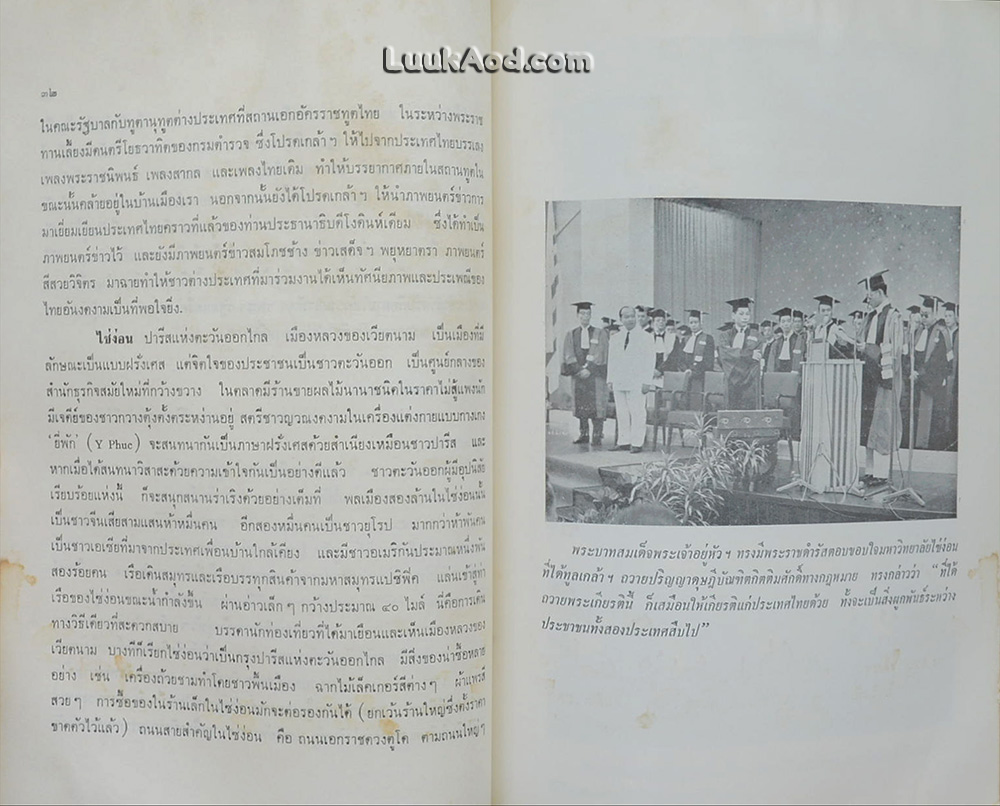 LuukAod.com
๓๒
ในคณะรัฐบาลกับทูตานุทูตต่างประเทศที่สถานเอกอัครราชทูตไทย ในระหว่างพระราช
ทานเลี้ยงมีดนตรีโยธวาทิตของกรมตำรวจ ซึ่งโปรดเกล้า ฯ ให้ไปจากประเทศไทยบรรเลง
เพลงพระราชนิพนธ์ เพลงสากล และเพลงไทยเดิม ทำให้บรรยากาศภายในสถานทูตใน
ขณะนั้นคล้ายอยู่ในบ้านเมืองเรา นอกจากนั้นยังได้โปรดเกล้า ฯ ให้นำภาพยนตร์ข่าวการ
มาเยี่ยมเยียนประเทศไทยคราวที่แล้วของท่านประธานาธิบดีโงดินห์เดียม ซึ่งได้ทำเป็น
ภาพยนตร์ข่าวไว้ และยังมีภาพยนตร์ข่าวสมโภชช้าง ข่าวเสด็จ ฯ พยุหยาตรา ภาพยนตร์
สีสวยวิจิตร มาฉายทำให้ชาวต่างประเทศที่มาร่วมงานได้เห็นทัศนียภาพและประเพณีของ
ไทยอันงดงามเป็นที่พอใจยิ่ง.
ไซ่ง่อน ปารีสแห่งตะวันออกไกล เมืองหลวงของเวียดนาม เป็นเมืองที่มี
ลักษณะเป็นแบบฝรั่งเศส แต่จิตใจของประชาชนเป็นชาวตะวันออก เป็นศูนย์กลางของ
สำนักธุรกิจสมัยใหม่ที่กว้างขวาง ในตลาดมีร้านขายผลไม้นานาชนิดในราคาไม่สู้แพงนัก
มีเจดีย์ของชาวกวางตุ้งตั้งตระหง่านอยู่ สตรีชาวญวณงดงามในเครื่องแต่งกายแบบกางเกง
'ยี่พัก' (Y Phuc) จะสนทนากันเป็นภาษาฝรั่งเศสด้วยสำเนียงเหมือนชาวปารีส และ
หากเมื่อได้สนทนาวิสาสะด้วยความเข้าใจกันเป็นอย่างดีแล้ว ชาวตะวันออกผู้มีอุปนิสัย
เรียบร้อยแห่งนี้ ก็จะสนุกสนานร่าเริงด้วยอย่างเต็มที่ พลเมืองสองล้านในไซ่ง่อนนั้น
เป็นชาวจีนเสียสามแสนห้าหมื่นคน อีกสองหมื่นคนเป็นชาวยุโรป มากกว่าห้าพันคน
เป็นชาวเอเซียที่มาจากประเทศเพื่อนบ้านใกล้เคียง และมีชาวอเมริกันประมาณหนึ่งพัน
สองร้อยคน เรือเดินสมุทรและเรือบรรทุกสินค้าจากมหาสมุทรแปซิฟิค แล่นเข้าสู่ท่า
เรือของไซ่ง่อนขณะน้ำกำลังขึ้น ผ่านอ่าวเล็ก ๆ กว้างประมาณ ๔๐ ไมล์ นี่คือการเดิน
ทางวิธีเดียวที่สะดวกสบาย บรรดานักท่องเที่ยวที่ได้มาเยือนและเห็นเมืองหลวงของ
เวียดนาม บางทีก็เรียกไซ่ง่อนว่าเป็นกรุงปารีสแห่งตะวันออกไกล มีสิ่งของน่าซื้อหลาย
อย่าง เช่น เครื่องถ้วยชามทำโดยชาวพื้นเมือง ฉากไม้เล็คเกอร์สีต่าง ๆ ผ้าแพรสี
สวย ๆ การซื้อของในร้านเล็กในไซ่ง่อนมักจะต่อรองกันได้ (ยกเว้นร้านใหญ่ซึ่งตั้งราคา
ขาดตัวไว้แล้ว) ถนนสายสำคัญในไซ่ง่อน คือ ถนนเอกราชดวงตูโด ตามถนนใหญ่ ๆ
พระบาทสมเด็จพระเจ้าอยู่หัว ฯ ทรงมีพระราชดำรัสตอบขอบใจมหาวิทยาลัยไซ่ง่อน
ที่ได้ทูลเกล้า ฯ ถวายปริญญาดุษฎีบัณฑิตกิตติมศักดิ์ทางกฎหมาย ทรงกล่าวว่า “ที่ได้
ถวายพระเกียรตินี้ ก็เสมือนให้เกียรติแก่ประเทศไทยด้วย ทั้งจะเป็นสิ่งผูกพันธ์ระหว่าง
ประชาชนทั้งสองประเทศสืบไป”